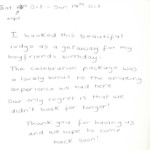 Oct - Sun 19th Oct
I booked this beautiful
lodge as a getaway for my
boyfriends birthday.
The celebration package was
a lovely bonus to the amazing
experience we had here.
Our only regret is that we
didn't book for longer!
Thank you for having us
and we hope to come
back soon!